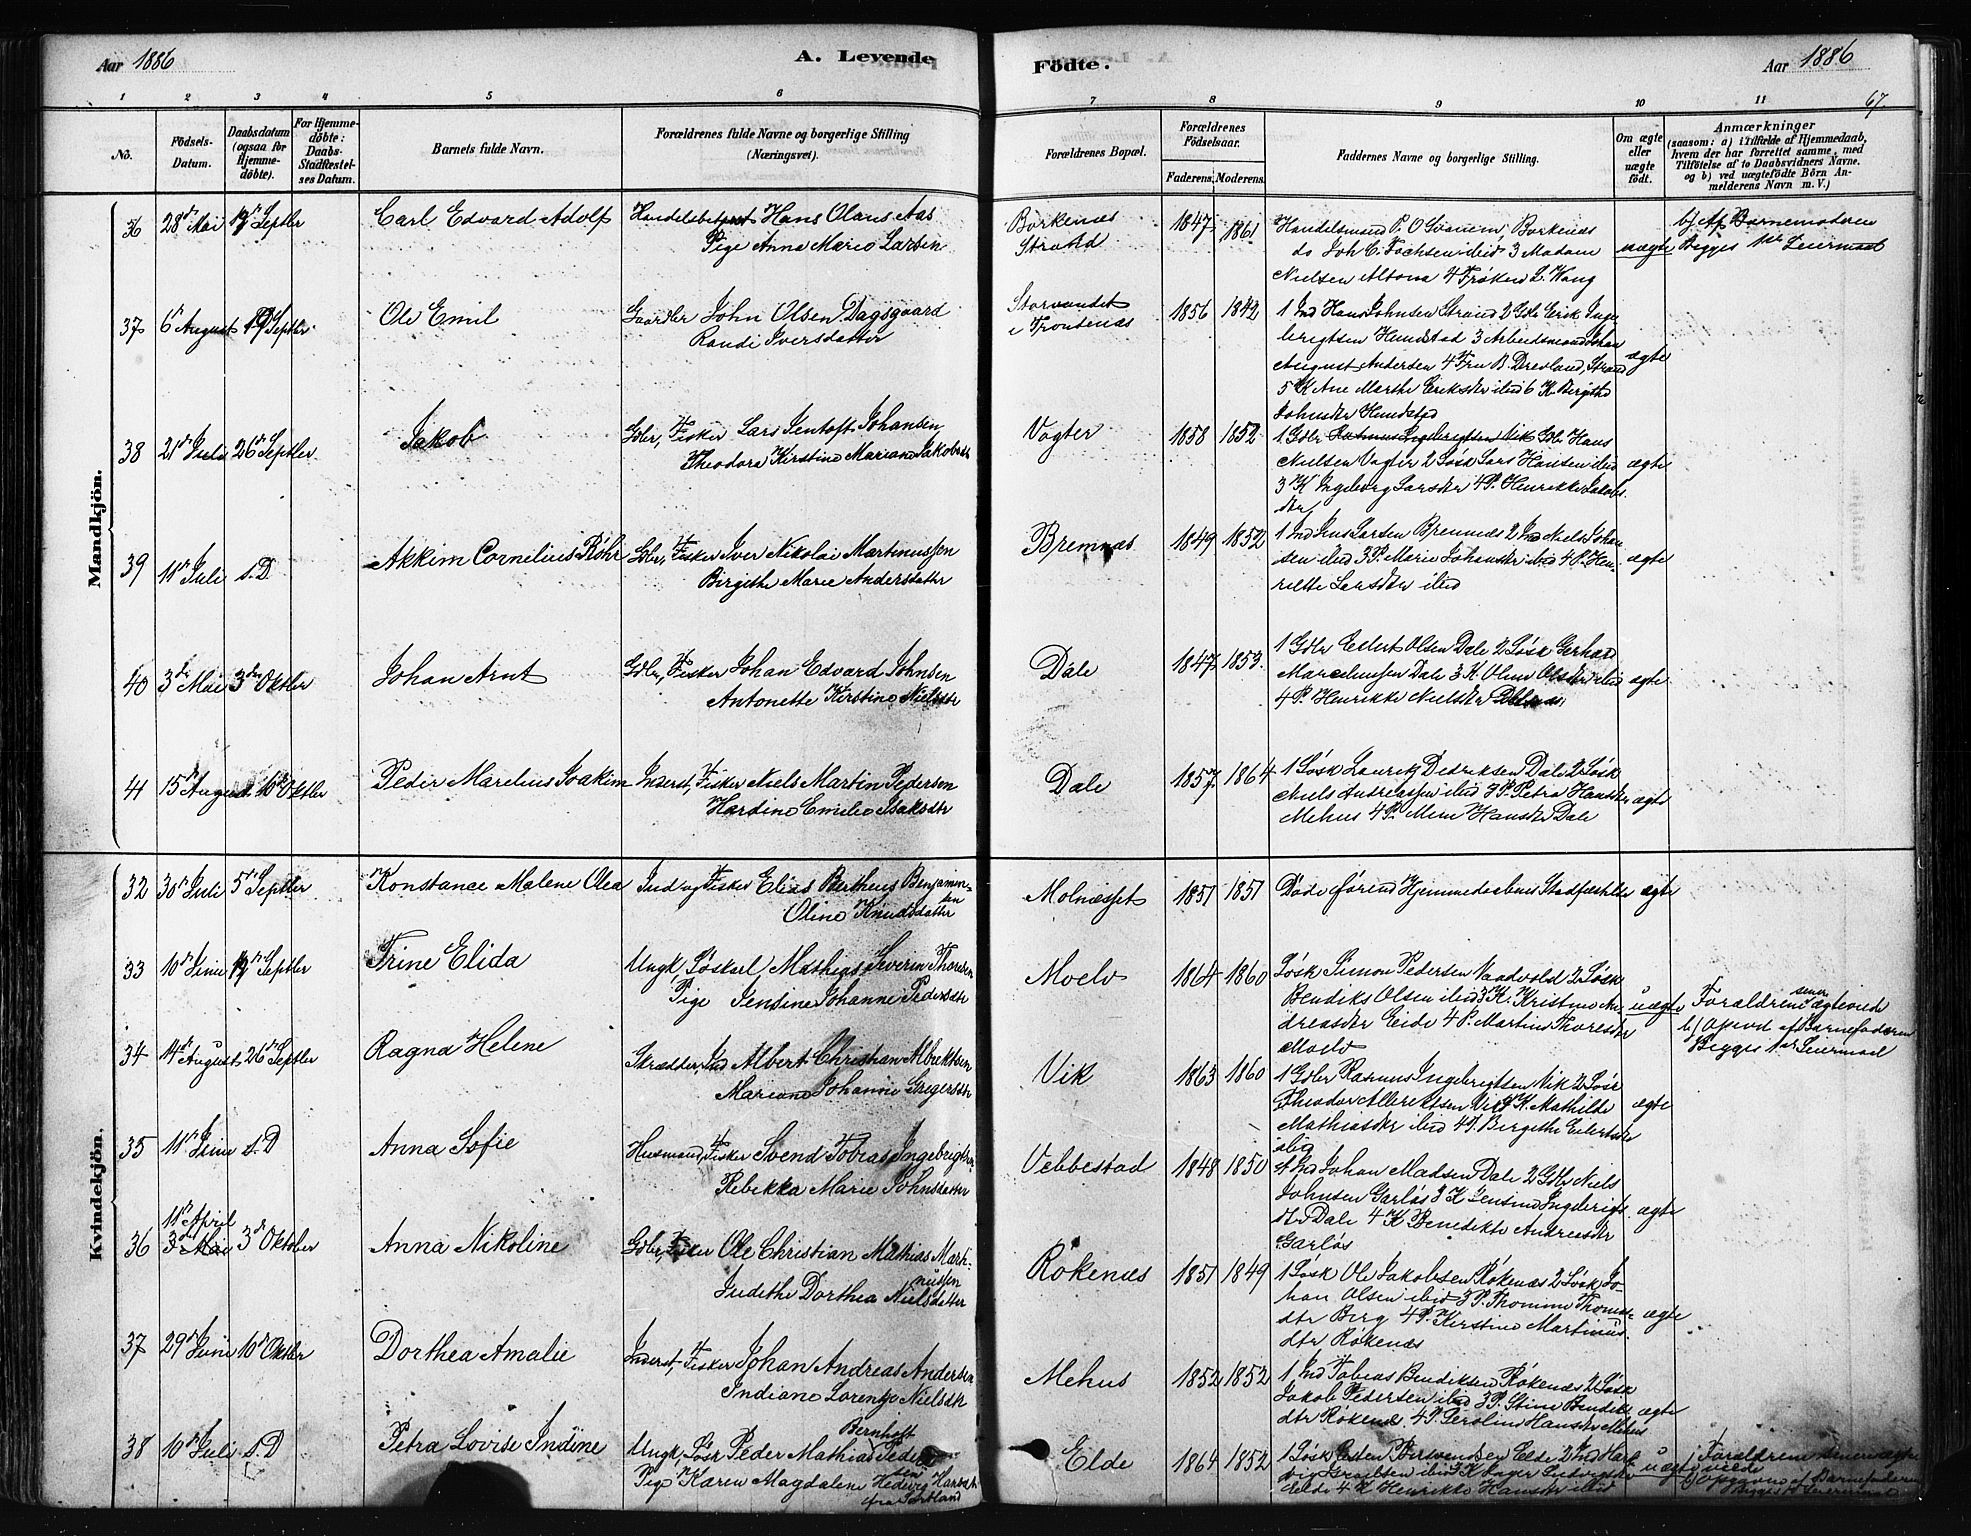 Aar 1886
A. Levende
Födte.
Aar 1886
1 2 3 4 5 6 7 8 9 10 11 67.
No.
Födsels-Datum.
Daabsdatum (ogsaa for Hjemme-döbte).
For Hjemme-döbte: Daabs-Stadfæstel-ses Datum.
Barnets fulde Navn.
Forældrenes fulde Navne og borgerlige Stilling (Næringsvei).
Forældrenes Bopæl.
Forældrenes Födselsaar.
Faderens. Moderens.
Faddernes Navne og borgerlige Stilling.
Om ægte eller uægte födt.
Anmærkninger
(saasom: a) i Tilfælde af Hjemmedaab,
hvem der har forrettet samme, med
Tilföielse af to Daabsvidners Navne.
og b) ved uægtefödte Börn An-
melderens Navn m. V.)
Mandkjön.
36 28de Mai Septbr Carl Edvard Adolf Hans Olaus Aas
Pige Anna Marie Larsen
Borkenæs
Strand
1847 1861
Handelsmand P. O. Borkenæs
do Joh C. ibid 3 Madam
Nielsen Altona 4 Frøken L. Kang
uægte
b) Af Barnemoderen
Begges 1ste Leiermaal
37 6te August 19 Septbr Ole Emil Gaardbr John Olsen Dagsgaard
Randi Iversdatter
Storvandet
i Trondenæs
1856 1842
1 Ind Hans Johnsen Strand 2 Gdbr Erik Inge
brigtsen Hundstad 3 Arbeidsmand Johan
August Andersen 4 Fru B. Drevland, Strand
5 K Ane Marthe Eriksdtr ibid 6 K. Bergithe
Johnsdtr Hundstad
ægte
38 21de Juli 26de Septbr Jakob Gdbr, Fisker Lars Jentoft Johansen
Theodora Kirstine Mariane Jakobsdtr
Vogter
1858 1852
1 Gdbr Rasmus Ingebrigtsen Vik Gdbr Hans
Nielsen Vogter 2 Søsk Lars Hansen ibid
3 K Ingeborg Larsdtr 4 P. Henrikke Jakobs
dtr
ægte
39 11te Juli s. D Akkim Cornelius Røhr Gdbr, Fisker Iver Nikolai Martinussen
Birgithe Marie Andersdatter
Bremnæs
1849 1852
1 Ind Jens Larsen Bremnæs 2 Ind Niels Johan
sen ibid 3 P. Marie Johansdtr ibid 4 P. Hen
riette Larsdtr ibid
ægte
40 3de Mai 3die Oktbr Johan Arnt Gdbr, Fisker Johan Edvard Johnsen
Antonette Kirstine Nielsdtr
Dale
1847 1853
1 Gdbr Eilert Olsen Dale 2 Søsk Gerhard
Marcelinssen Dale 3 K. Oline Olsdtr ibid
4 P. Henrikke Nielsdtr
ægte
41 15de August 10de Oktbr Peder Marelius Joakim Inderst, Fisker Niels Martin Pedersen
Hardine Emilie Isaksdtr
Dale
1857 1864
1 Søsk Lauritz Dedriksen Dale 2 Søsk
Niels Andreassen ibid 3 P. Petra Hansdtr
Mehus 4 P. Mem Hansdtr Dale
ægte
Kvindekjön.
32 30de Juli 5te Septbr Konstance Malene Olea Ind og Fisker Elias Bertheus Benjamin-
sen
Oline Knudsdatter
Molnæsset
1851 1851
Døde førend Hjemmedaaben Stadfæstedes
ægte
33 10de Juni Septbr Trine Elida Ungk, Søskarl Mathias Severin Thoresen
Pige Jensine Johanne Pedersdtr
Moelv
1864 1860
Søsk Simon Pedersen Vaadvold 2 Søsk
Bendiks Olsen ibid 3 K. Kristine An
dreasdtr Eide 4 P. Martine Thoresdtr
Moelv
uægte
Forældrene senere ægteviede
b) Opgivet af Barnefaderen
Begges 1ste Leiermaal
34 14de August 26de Septbr Ragna Helene Skrædder, Ind Albert Christian Albrektsen
Mariane Johanne Gregersdtr
Vik
1863 1860
1 Gdbr Rasmus Ingebrigtsen Vik 2 Søsk
Theodor Albrektsen Vik 3 K. Mathilde
Mathiasdtr ibid 4 P. Birgithe Eilertsdtr
ibid
ægte
35 11te Juni s. D Anna Sofie Husmand, Fisker Svend Tobias Ingebrigtsen
Rebekka Marie Johnsdatter
Vebbestad
1848 1850
1 Ind Johan Madsen Dale 2 Gdbr Niels
Johnsen Garløs 3 K Jensine Ingebrigts
dtr Dale 4 K Benedikte Andreasdtr
Garløs
ægte
36 11te April
3de Mai 3de Oktober Anna Nikoline Gdbr, Fisker Ole Christian Mathias Marti-
nussen
Judithe Dorthea Nielsdatter
Røkenæs
1851 1849
1 Søsk Ole Jakobsen Røkenæs 2 Søsk Jo
han Olsen ibid 3 P. Thomine Thomas
dtr Berg 4 P. Kirstine Martinus
dtr Røkenæs
ægte
37 29de Juni 10de Oktbr Dorthea Amalie Inderst, Fisker Johan Andreas Andersen
Indiane Lorentze Nielsdtr
Mehus
1852 1852
1 Ind Tobias Bendiksen Røkenæs 2 Søsk
Jakob Pedersen ibid 3 P. Stine Bendiks
dtr Røkenæs 4 P. Seroline Hansdtr Mehus
ægte
38 10de Juli s. D Petra Lovise Indine Ungk, Søsk Peder Mathias Bernhoft Peder
sen
Pige Karen Magdalene Hedevig Hansdtr
fra Sortland
Elde
1864 1852
1 Søsk Esten Elde 2 Ind
ibid 3 K Ludvigsdtr
Elde 4 K Henrikke Hansdtr ibid
uægte
Forældrene senere ægte
viede
Opgavne af Barnefaderen
Begges Leiermaal